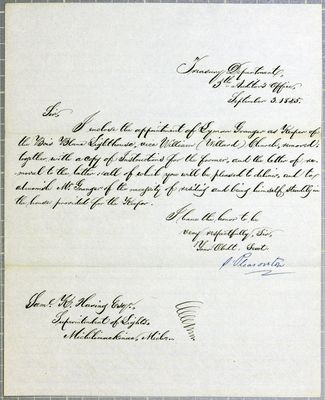 Treasury Department,
5th Auditor's Office,
September 3. 1845.
Sir,
I inclose the appointment of Lyman Granger as Keeper of
the Bois Blanc Lighthouse, vice William (Willard) Church, removed;
together with a copy of Instructions for the former, and the letter of re-
moval to the latter, all of which you will be pleased to deliver, and to
admonish Mr. Granger of the necessity of residing and being himself, strictly in
the house provided for the Keeper.
I have the honor to be
very respectfully, Sir,
Your Obdt. Servt.
S. Pleasonton
Saml. K. Haring Esqr.
Superintendent of Lights.
Michilimackinac, Mich.